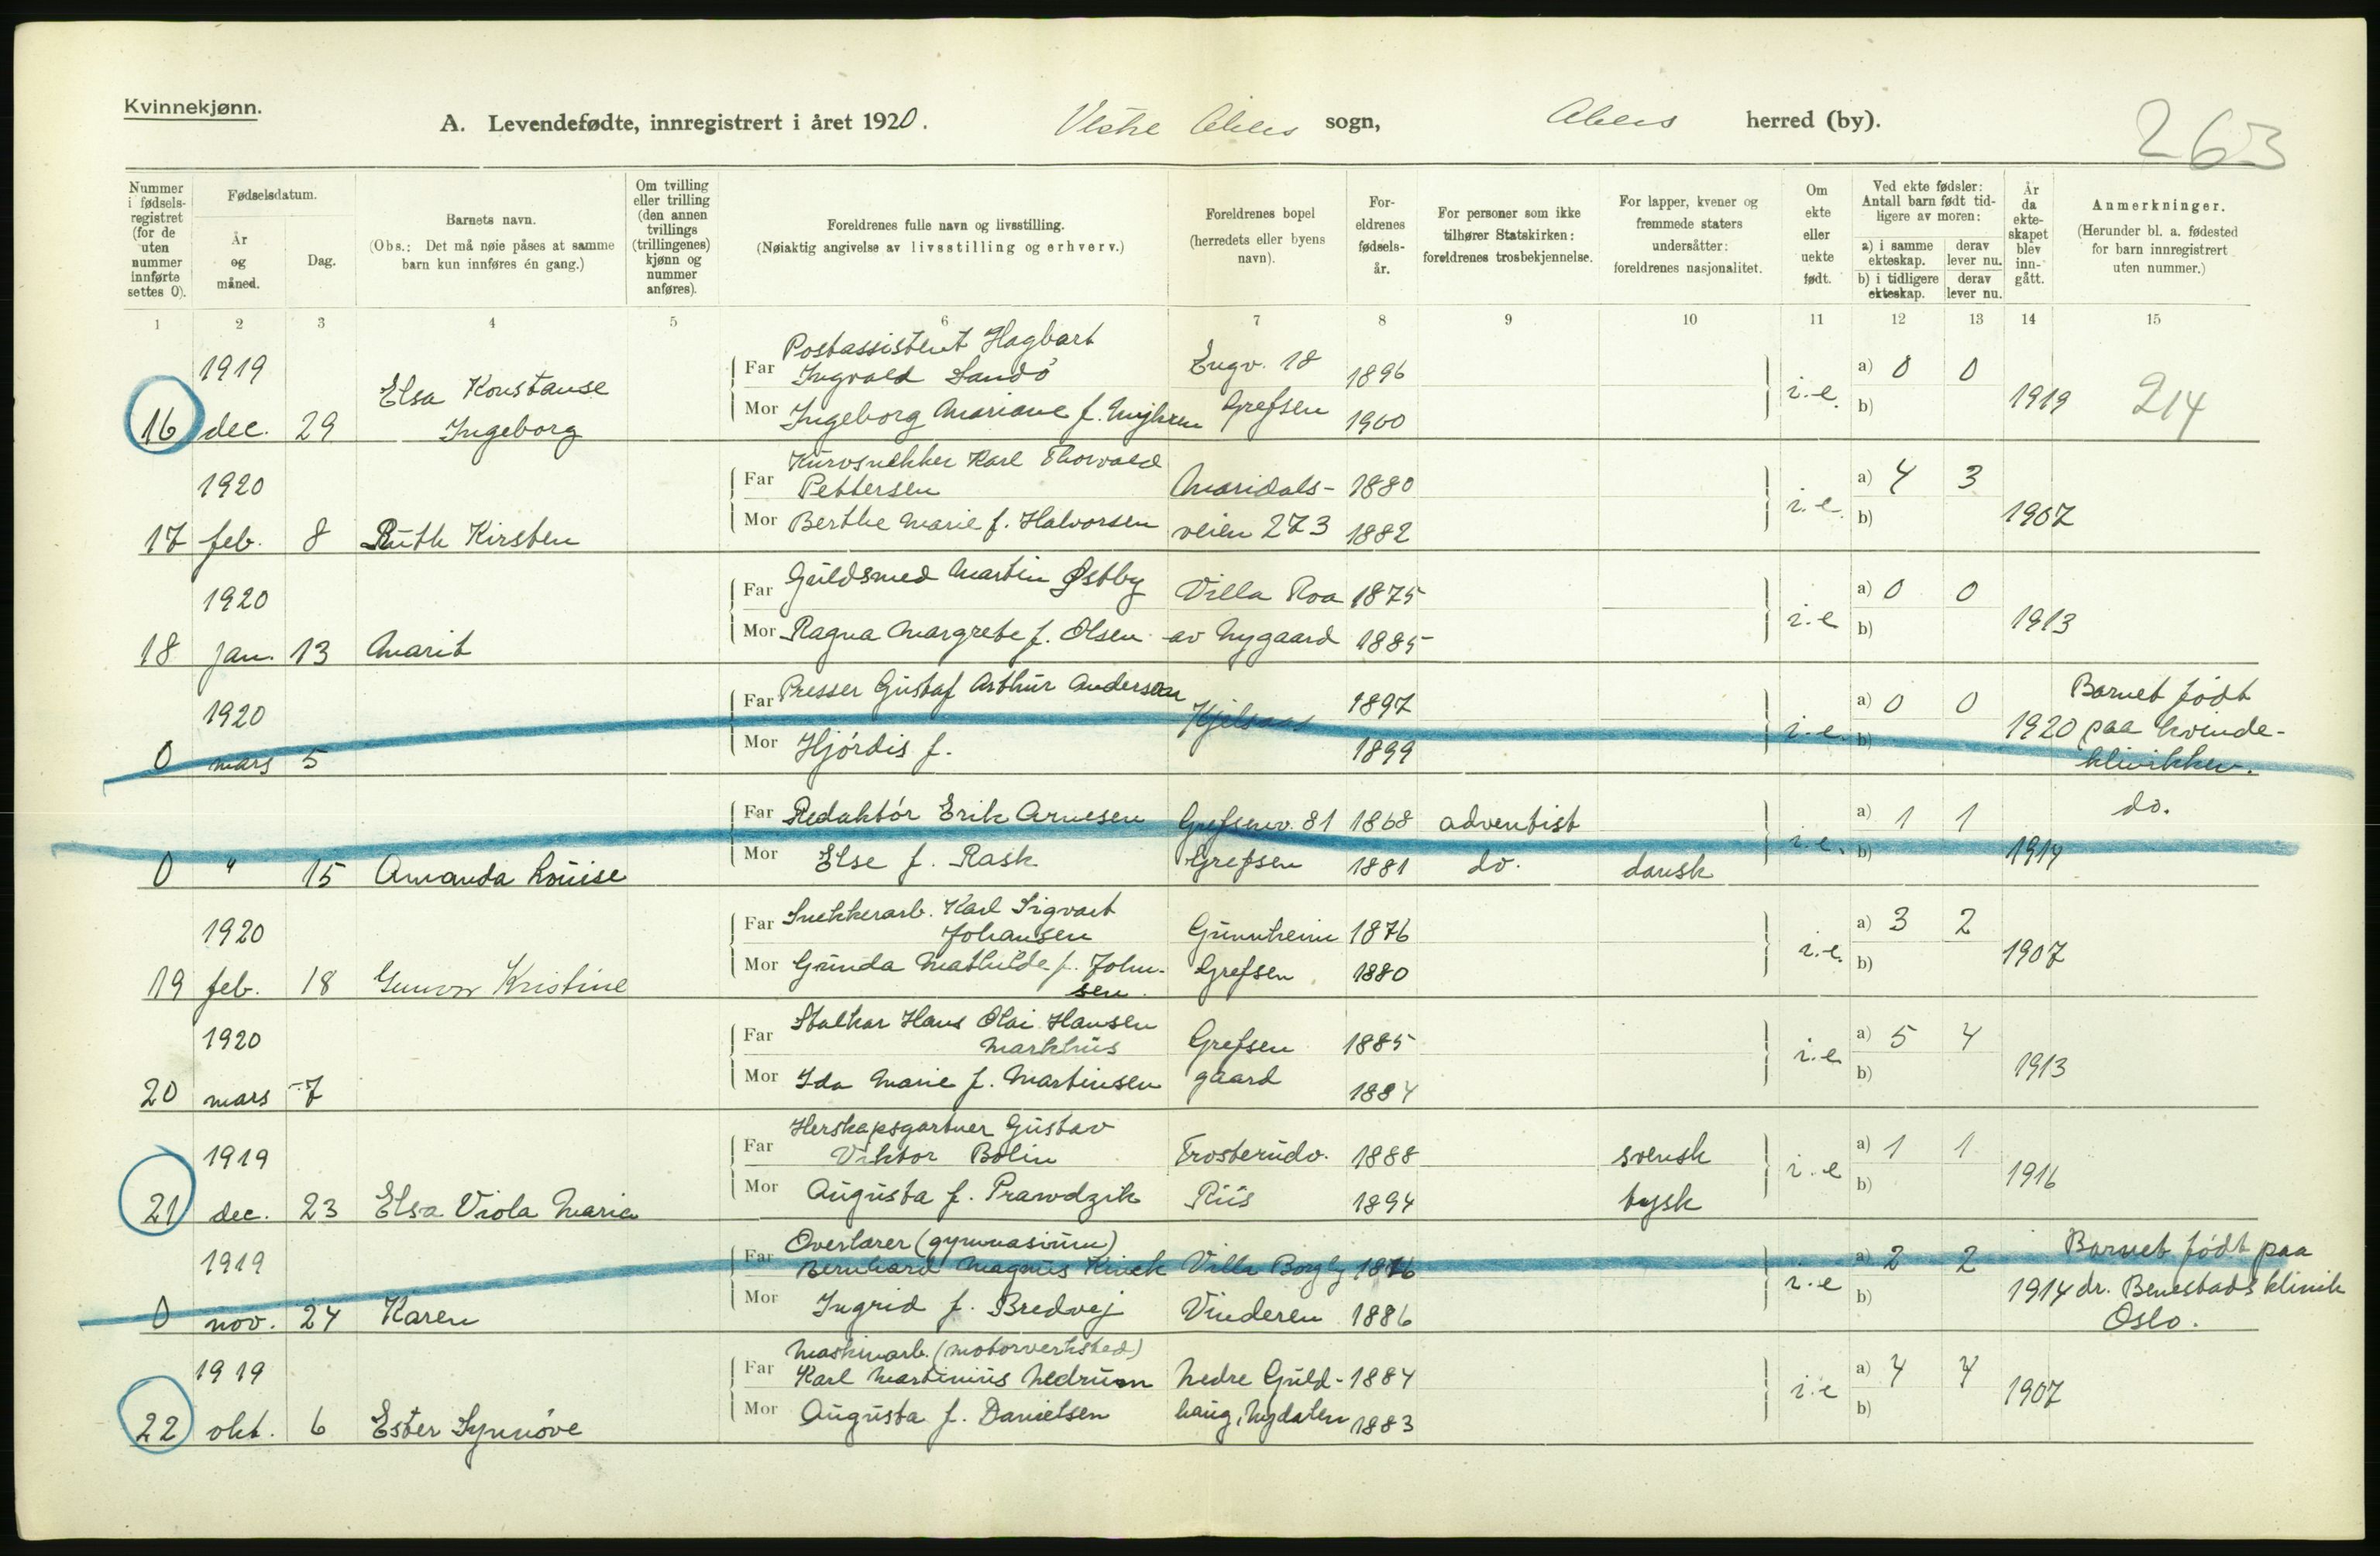 Kvinnekjønn.
A. Levendefødte, innregistrert i året 1920. Vestre Akers sogn, Akers herred (by).
263
Nummer i fødsels-registret (for de uten nummer innførte settes 0).
Fødselsdatum.
År og måned.
Dag.
Barnets navn.
(Obs.: Det må nøie påses at samme barn kun innføres én gang.)
Om tvilling eller trilling (den annen tvillings (trillingenes) kjønn og nummer anføres).
Foreldrenes fulle navn og livsstilling.
(Nøiaktig angivelse av livsstilling og erhverv.)
Foreldrenes bopel (herredets eller byens navn).
For-eldrenes fødsels-år.
For personer som ikke tilhører Statskirken: foreldrenes trosbekjennelse.
For lapper, kvener og fremmede staters undersåtter: foreldrenes nasjonalitet.
Om ekte eller uekte født.
Ved ekte fødsler: Antall barn født tid-ligere av moren:
a) i samme ekteskap. derav lever nu.
b) i tidligere ekteskap. derav lever nu.
År da ekte-skapet blev inn-gått.
Anmerkninger.
(Herunder bl. a. fødested for barn innregistrert uten nummer.)
1 2 3 4 5 6 7 8 9 10 11 12 13 14 15
Postassistent Hagbart
1919 Far Ingvald Sandø Engv. 18 1896 a) 0 0
Elsa Konstanse i.e. 1919 214
Mor Ingeborg Mariane f. Grefsen 1900 b)
16 dec. 29 Ingeborg
Kurvsnekker Karl Thorvald
1920 Far Pettersen Maridals- 1880 a) 4 3
Mor Berthe Marie f. Halvorsen veien 273 1882 i.e. b) 1907
17 feb. 8 Ruth Kirsten
1920 Far Guldsmed Martin Østby Villa Roa 1875 a) 0 0
Mor Ragna Margrete f. Olsen av Nygaard 1885 i.e. b) 1913
18 jan. 13 Marit
1920 Far Presser Gustaf Arthur Anderson Kjelsaas 1897 a) 0 0 Barnet født
i.e. 1920 paa kvinde-
0 mars 5 Mor Hjórdis f. 1899 b) klinikken.
Far Redaktór Erik Arnesen Grefsenv. 81 1868 adventist a) 1 1 do.
i.e. b) 1914
0 " 15 Amanda Louise Mor Else f. Rask Grefsen 1881 do. dansk
Far Snekkerarb. Karl Sigvart
1920 Johansen Gunnheim 1876 a) 3 2
Mor Gunda Mathilde f. John- Grefsen 1880 i.e. b) 1907
19 feb. 18 Gunvor Kristine sen.
Far Stalkar Hans Olai Hansen
1920 Markhus Grefsen 1885 a) 5 4
Mor Ida Marie f. Martinsen gaard 1884 i.e. b) 1913
20 mars 7
Herskapsgartner Gustav
1919 Far Viktor Bolin Trosterudv. 1888 svensk a) 1 1
i.e. 1916
21 dec. 23 Elsa Viola Maria Mor Augusta f. Prawdzik Riis 1894 tysk b)
Overlærer (gymnasium)
1919 Far Bernhard Magnus Kinck Villa Borgly 1876 a) 2 2 Barnet født paa
i.e. 1914 dr. Benestads klinik
0 nov. 24 Karen Mor Ingrid f. Bredvej Vinderen 1886 b) Oslo.
Maskinarb. (motorverksted)
1919 Far Karl Martinius Nedrum Nedre Guld- 1884 a) 4 4
i.e. 1907
22 okt. 6 Ester Synnóve Mor Augusta f. Danielsen haug, Nydalen 1883 b)